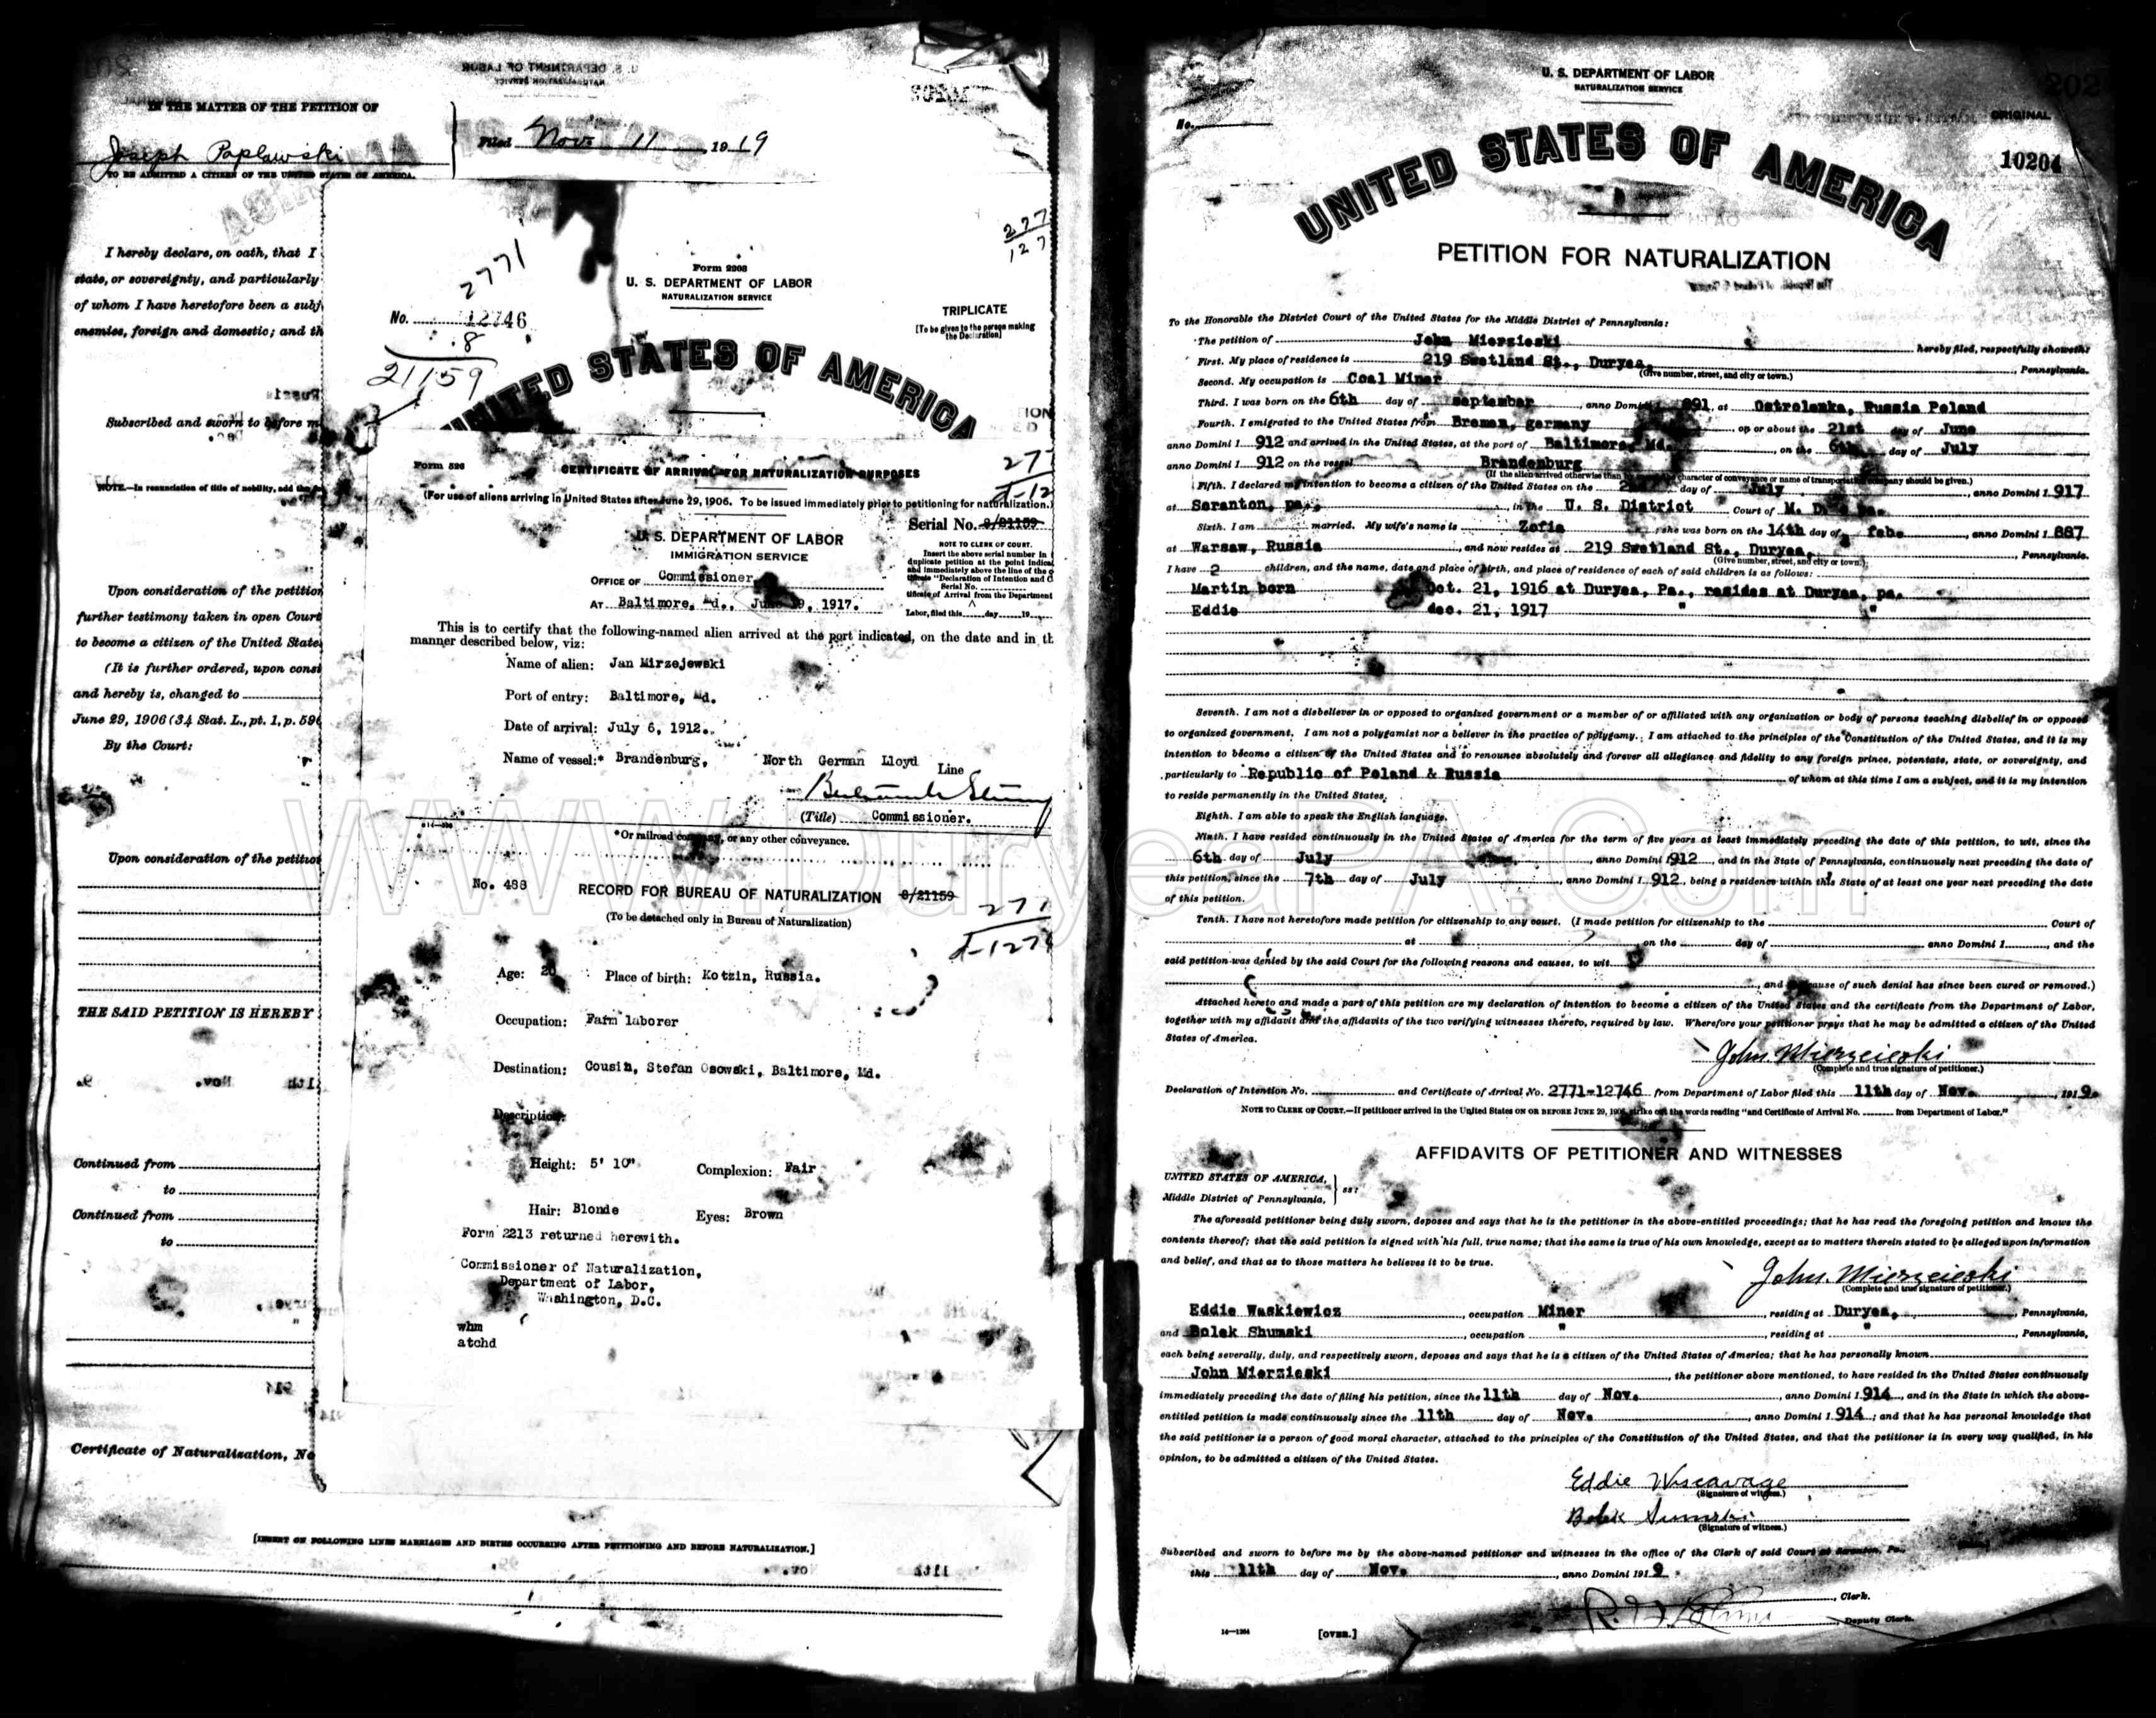 IN THE MATTER OF THE PETITION OF
Joseph Paplawski
TO BE ADMITTED A CITIZEN OF THE UNITED STATES OF AMERICA.
Filed Nov. 11, 1919
I hereby declare, on oath, that I
state, or sovereignty, and particularly
of whom I have heretofore been a subj
enemies, foreign and domestic; and th
Subscribed and sworn to before m
NOTE.—In renunciation of title of nobility, add the
Upon consideration of the petition
further testimony taken in open Court
to become a citizen of the United States
(It is further ordered, upon consi
and hereby is, changed to
June 29, 1906 (34 Stat. L., pt. 1, p. 596
By the Court:
Upon consideration of the petition
THE SAID PETITION IS HEREBY
Continued from
to
Continued from
to
Certificate of Naturalization, No
[INSERT ON FOLLOWING LINES MARRIAGES AND BIRTHS OCCURRING AFTER PETITIONING AND BEFORE NATURALIZATION.]
2771
277
127
Form 2203
U. S. DEPARTMENT OF LABOR
NATURALIZATION SERVICE
No. 12746
8
21159
TRIPLICATE
[To be given to the person making
the Declaration]
UNITED STATES OF AMERICA
Form 526
CERTIFICATE OF ARRIVAL—FOR NATURALIZATION PURPOSES
(For use of aliens arriving in United States after June 29, 1906. To be issued immediately prior to petitioning for naturalization.)
Serial No. 8/21159
U. S. DEPARTMENT OF LABOR
IMMIGRATION SERVICE
NOTE TO CLERK OF COURT.
Insert the above serial number in
duplicate petition at the point indica
and immediately above the line of the
"Declaration of Intention and C
Serial No.
tificate of Arrival from the Department
Labor, filed this day 19
OFFICE OF Commissioner
AT Baltimore, Md., June 19, 1917.
This is to certify that the following-named alien arrived at the port indicated, on the date and in th
manner described below, viz:
Name of alien: Jan Mirzejewski
Port of entry: Baltimore, Md.
Date of arrival: July 6, 1912.
Name of vessel:* Brandenburg, North German Lloyd Line
(Title) Commissioner.
*Or railroad company, or any other conveyance.
No. 488 RECORD FOR BUREAU OF NATURALIZATION 8/21159
(To be detached only in Bureau of Naturalization)
Age: 20 Place of birth: Kotzin, Russia.
Occupation: Farm laborer
Destination: Cousin, Stefan Osowski, Baltimore, Md.
Description:
Height: 5' 10" Complexion: Fair
Hair: Blonde Eyes: Brown
Form 2213 returned herewith.
Commissioner of Naturalization,
Department of Labor,
Washington, D.C.
whm
atchd
U. S. DEPARTMENT OF LABOR
NATURALIZATION SERVICE
No.
ORIGINAL
202
10204
UNITED STATES OF AMERICA
PETITION FOR NATURALIZATION
To the Honorable the District Court of the United States for the Middle District of Pennsylvania:
The petition of John Mierzieski hereby filed, respectfully showeth:
First. My place of residence is 219 Swetland St., Duryea, Pennsylvania.
(Give number, street, and city or town.)
Second. My occupation is Coal Miner
Third. I was born on the 6th day of september, anno Domini 1891, at Ostrolenka, Russia Poland
Fourth. I emigrated to the United States from Bremen, germany on or about the 21st day of June
anno Domini 1912 and arrived in the United States, at the port of Baltimore, Md., on the 6th day of July
anno Domini 1912 on the vessel Brandenburg
(If the alien arrived otherwise than by character of conveyance or name of transportation company should be given.)
Fifth. I declared my intention to become a citizen of the United States on the day of July, anno Domini 1917
at Scranton, pa., in the U. S. District Court of M. D. Pa.
Sixth. I am married. My wife's name is Zofia she was born on the 14th day of febe, anno Domini 1887
at Warsaw, Russia, and now resides at 219 Swetland St., Duryea, Pennsylvania.
(Give number, street, and city or town.)
I have 2 children, and the name, date and place of birth, and place of residence of each of said children is as follows:
Martin born Oct. 21, 1916 at Duryea, Pa., resides at Duryea, pa.
Eddie dec. 21, 1917 " "
Seventh. I am not a disbeliever in or opposed to organized government or a member of or affiliated with any organization or body of persons teaching disbelief in or opposed
to organized government. I am not a polygamist nor a believer in the practice of polygamy. I am attached to the principles of the Constitution of the United States, and it is my
intention to become a citizen of the United States and to renounce absolutely and forever all allegiance and fidelity to any foreign prince, potentate, state, or sovereignty, and
particularly to Republic of Poland & Russia of whom at this time I am a subject, and it is my intention
to reside permanently in the United States.
Eighth. I am able to speak the English language.
Ninth. I have resided continuously in the United States of America for the term of five years at least immediately preceding the date of this petition, to wit, since the
6th day of July, anno Domini 1912, and in the State of Pennsylvania, continuously next preceding the date of
this petition, since the 7th day of July, anno Domini 1912, being a residence within this State of at least one year next preceding the date
of this petition.
Tenth. I have not heretofore made petition for citizenship to any court. (I made petition for citizenship to the Court of
at on the day of anno Domini 1, and the
said petition was denied by the said Court for the following reasons and causes, to wit
, and the cause of such denial has since been cured or removed.)
Attached hereto and made a part of this petition are my declaration of intention to become a citizen of the United States and the certificate from the Department of Labor,
together with my affidavit and the affidavits of the two verifying witnesses thereto, required by law. Wherefore your petitioner prays that he may be admitted a citizen of the United
States of America.
John Mierzcieski
(Complete and true signature of petitioner.)
Declaration of Intention No. and Certificate of Arrival No. 2771-12746 from Department of Labor filed this 11th day of Nov., 1919.
NOTE TO CLERK OF COURT.—If petitioner arrived in the United States ON OR BEFORE JUNE 29, 1906, strike out the words reading "and Certificate of Arrival No. from Department of Labor."
AFFIDAVITS OF PETITIONER AND WITNESSES
UNITED STATES OF AMERICA,
Middle District of Pennsylvania, ss:
The aforesaid petitioner being duly sworn, deposes and says that he is the petitioner in the above-entitled proceedings; that he has read the foregoing petition and knows the
contents thereof; that the said petition is signed with his full, true name; that the same is true of his own knowledge, except as to matters therein stated to be alleged upon information
and belief, and that as to those matters he believes it to be true.
John. Mierzcieski
(Complete and true signature of petitioner.)
Eddie Waskiewicz, occupation Miner, residing at Duryea, Pennsylvania,
and Bolek Shumski, occupation ", residing at ", Pennsylvania,
each being severally, duly, and respectively sworn, deposes and says that he is a citizen of the United States of America; that he has personally known
John Mierzieski, the petitioner above mentioned, to have resided in the United States continuously
immediately preceding the date of filing his petition, since the 11th day of Nov., anno Domini 1914, and in the State in which the above-
entitled petition is made continuously since the 11th day of Nov., anno Domini 1914; and that he has personal knowledge that
the said petitioner is a person of good moral character, attached to the principles of the Constitution of the United States, and that the petitioner is in every way qualified, in his
opinion, to be admitted a citizen of the United States.
Eddie Wiscavage
(Signature of witness.)
Bolek Sumski
(Signature of witness.)
Subscribed and sworn to before me by the above-named petitioner and witnesses in the office of the Clerk of said Court at Scranton, Pa.
this 11th day of Nov., anno Domini 1919
, Clerk.
Deputy Clerk.
14—1264 [OVER.]
www.DuryeaPA.Com